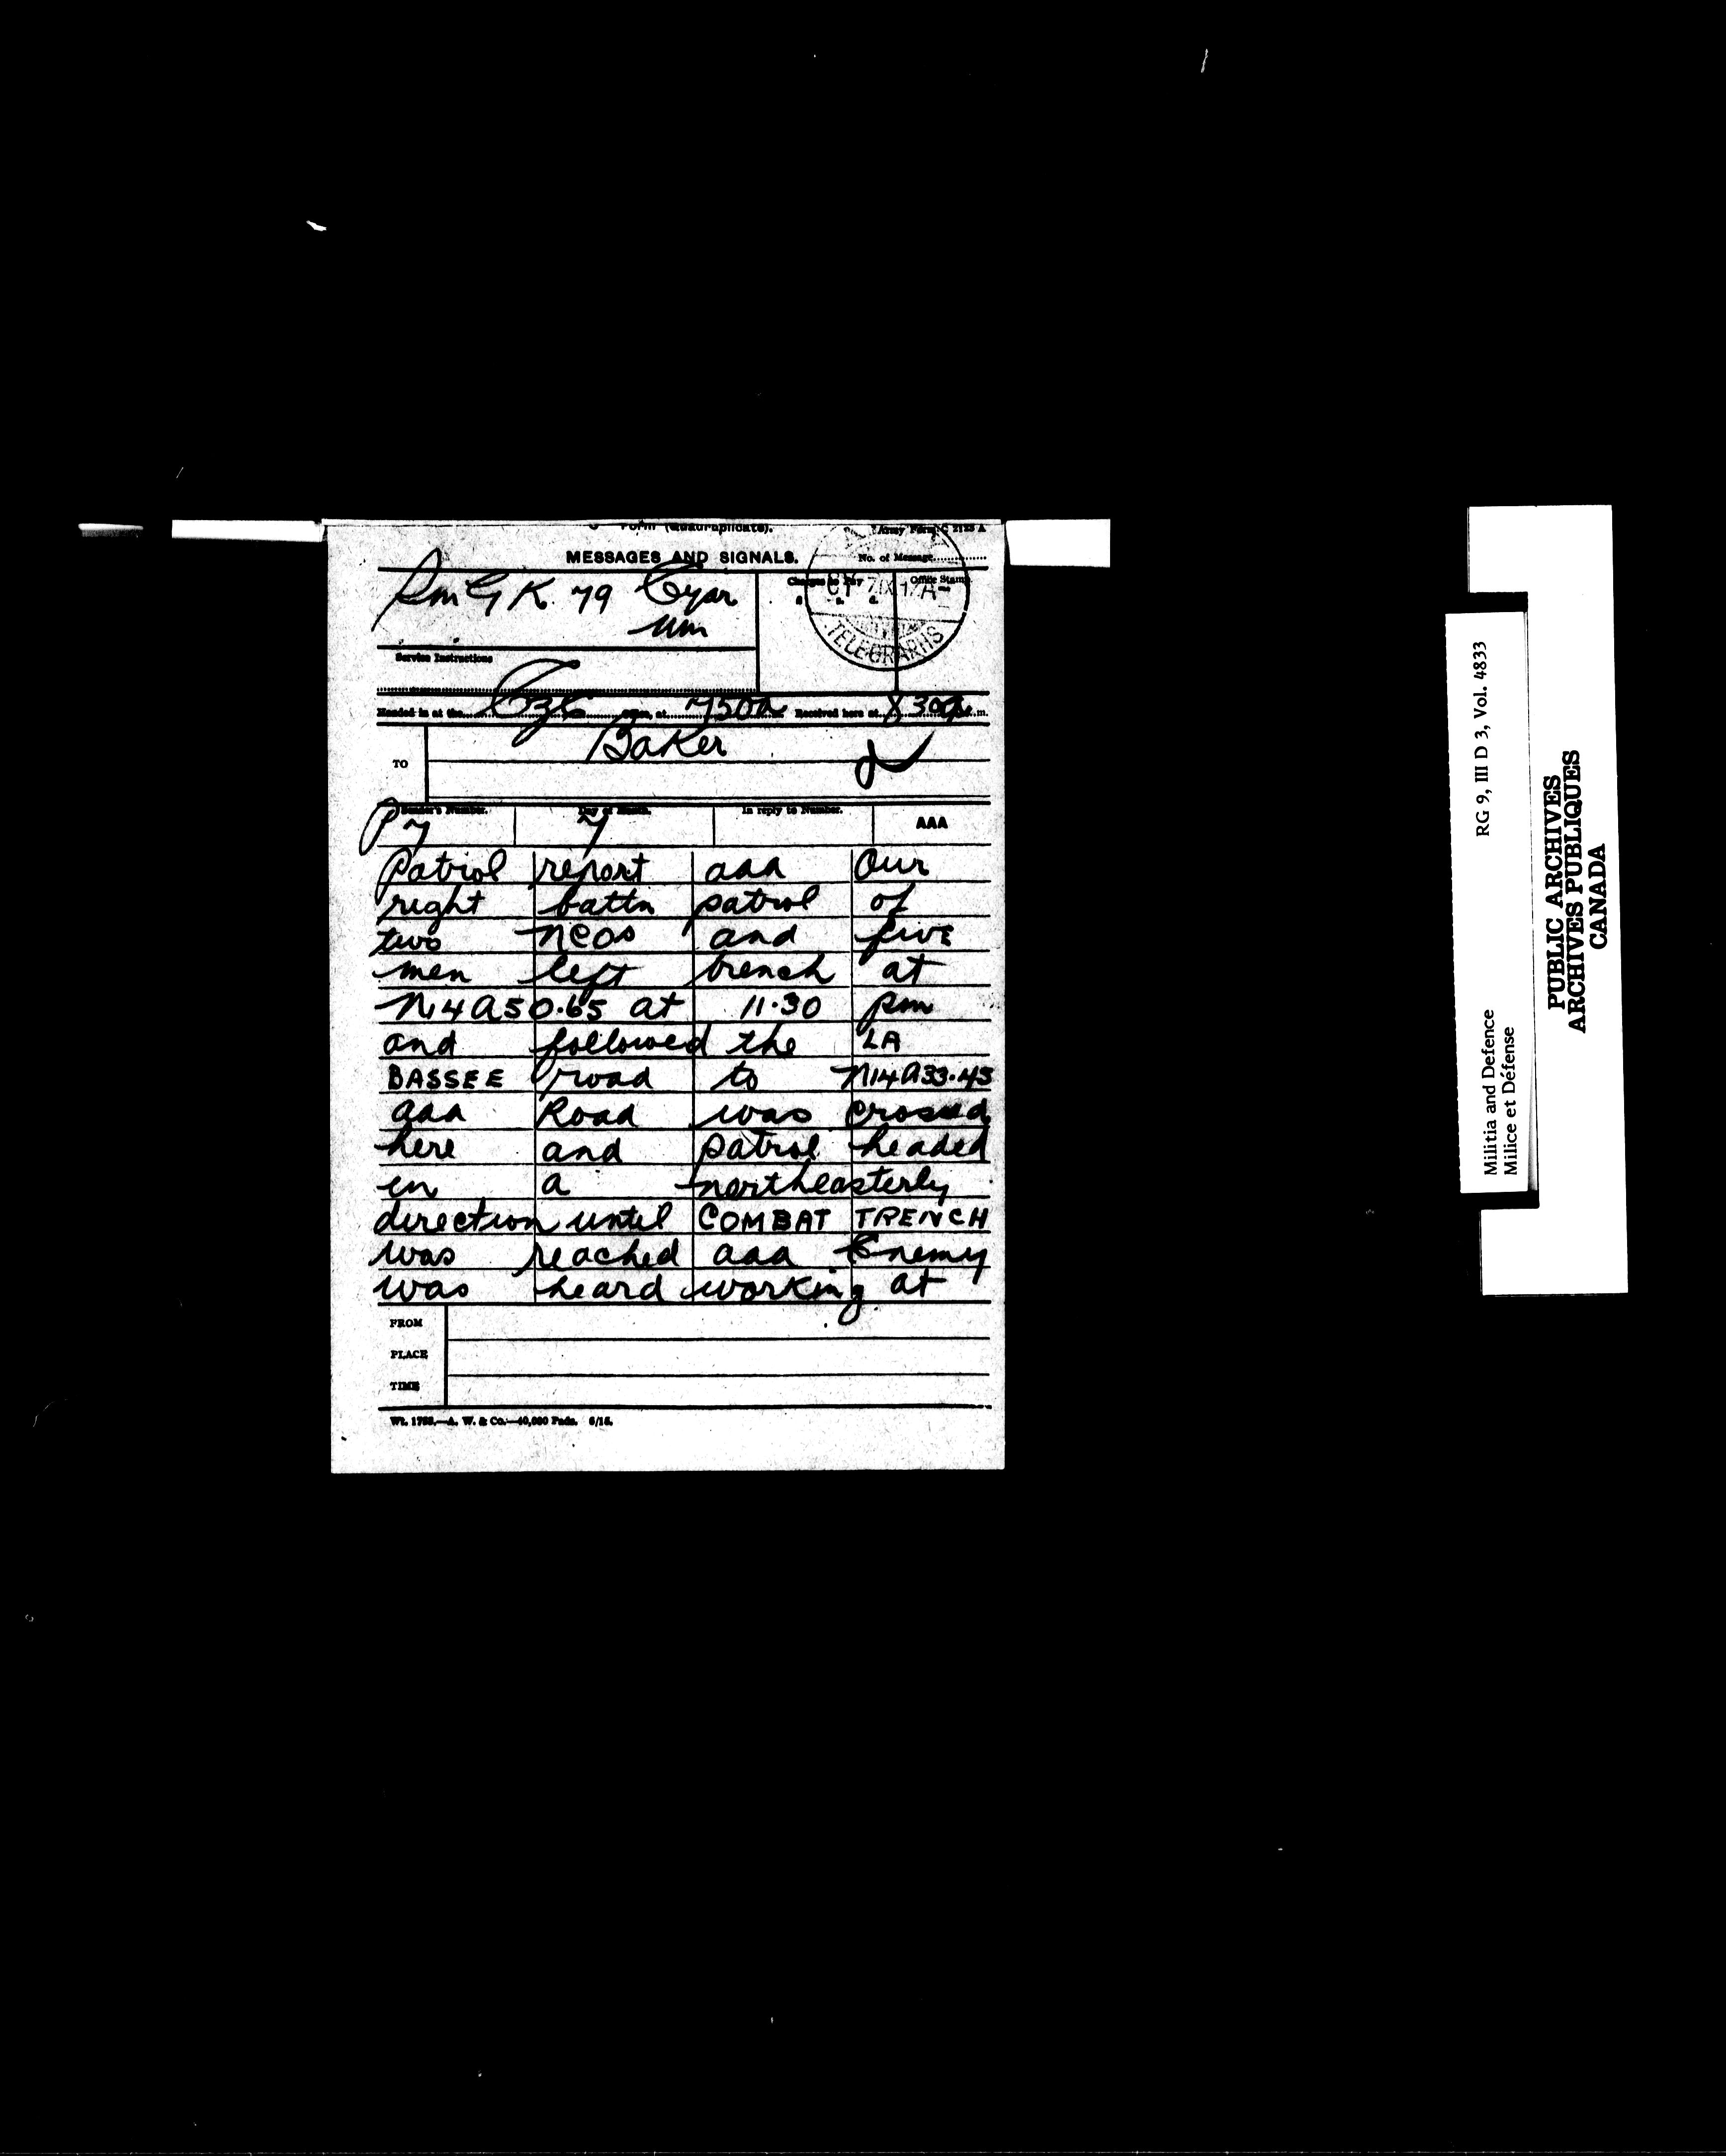 Form (Quadruplicate).
Army Form C 2123 A
MESSAGES AND SIGNALS.
No. of Message
Sm G K 79
Charges to Pay
Office Stamp
Service Instructions
TELEGRAPHS
Handed in at the Office, at 750a Received here at 830a m.
TO
Baker
Sender's Number.
Day of Month.
In reply to Number.
P7
7
AAA
Patrol report aaa Our
right battn patrol of
two NCOs and five
men left trench at
N14A50.65 at 11.30 pm
and followed the LA
BASSEE road to N14A33.43
aaa Road was crossed
here and patrol headed
in a northeasterly
direction until COMBAT TRENCH
was reached aaa Enemy
was heard working at
FROM
PLACE
TIME
Wt. 1789.—A. W. & Co.—40,000 Pads. 6/15.
Militia and Defence
Milice et Défense
RG 9, III D 3, Vol. 4833
PUBLIC ARCHIVES
ARCHIVES PUBLIQUES
CANADA